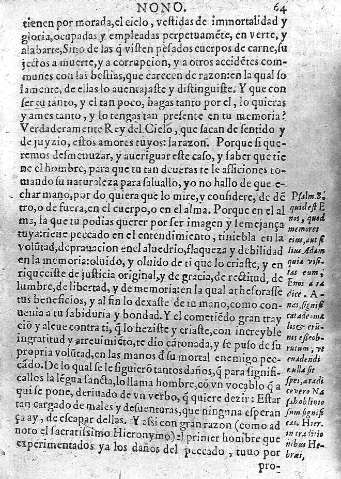 NONO. 64
tienen por morada, el cielo, vestidas de immortalidad y
gloria, ocupadas y empleadas perpetuamẽte, en verte, y
alabarte, Sino de las q̃ visten pesados cuerpos de carne, su
jectos a muerte, y a corrupcion, y a otros accidẽtes com-
munes con las bestias, que carecen de razon: en la qual so
lamente, de ellas lo auentajaste y distinguiste. Y que con
ser tu tanto, y el tan poco, hagas tanto por el, lo quieras
y ames tanto, y lo tengas tan presente en tu memoria?
Verdaderamente Rey del Cielo, que sacan de sentido y
de juyzio, estos amores tuyos: la razon. Porque si que-
remos desmenuzar, y aueriguar este caso, y saber que tie
ne el hombre, para que tu tan deueras te le afficiones to-
mando su naturaleza para saluallo, yo no hallo de que e-
char mano, por do quiera que lo mire, y considere, de dẽ
tro, o de fuera, en el cuerpo, o en el alma. Porque en el al
ma, la que tu podias querer por ser imagen y semejança
tuya: tiene peccado en el entendimiento, tiniebla en la
volũtad, deprauacion en el aluedrio, flaqueza y debilidad
en la memoria: oluido, y oluido de ti que lo criaste, y en-
riqueciste de justicia original, y de gracia, de restitud, de
lumbre, de libertad, y de memoria: en la qual athesorasse
tus beneficios, y al fin lo dexaste de tu mano, como con-
uenia a tu sabiduria y bondad. Y el cometiẽdo gran tray
ciõ y aleue contra ti, q̃ lo heziste y criaste, con increyble
ingratitud y atreuimiẽto, te dio cãtonada, y se puso de su
propria volũtad, en las manos d̃ su mortal enemigo pec-
cado. De lo qual se le siguierõ tantos daños, q̃ para signifi-
callos la lẽgua sancta, lo llama hombre, cõ vn vocablo q̃ a
qui se pone, deriuado de vn verbo, q̃ quiere dezir: Estar
tan cargado de males y desuenturas, que ninguna esperan
ça ay, de escapar dellas. Y assi con gran razon (como ad
noto el sacratissimo Hieronymo): el primer hombre que
experimentados ya los daños del peccado, tuuo por
pro-
Psalm. 8.
quid est E
nos, quod
memores
eius, aut fi
lius hominis
quia visi-
tas eum,